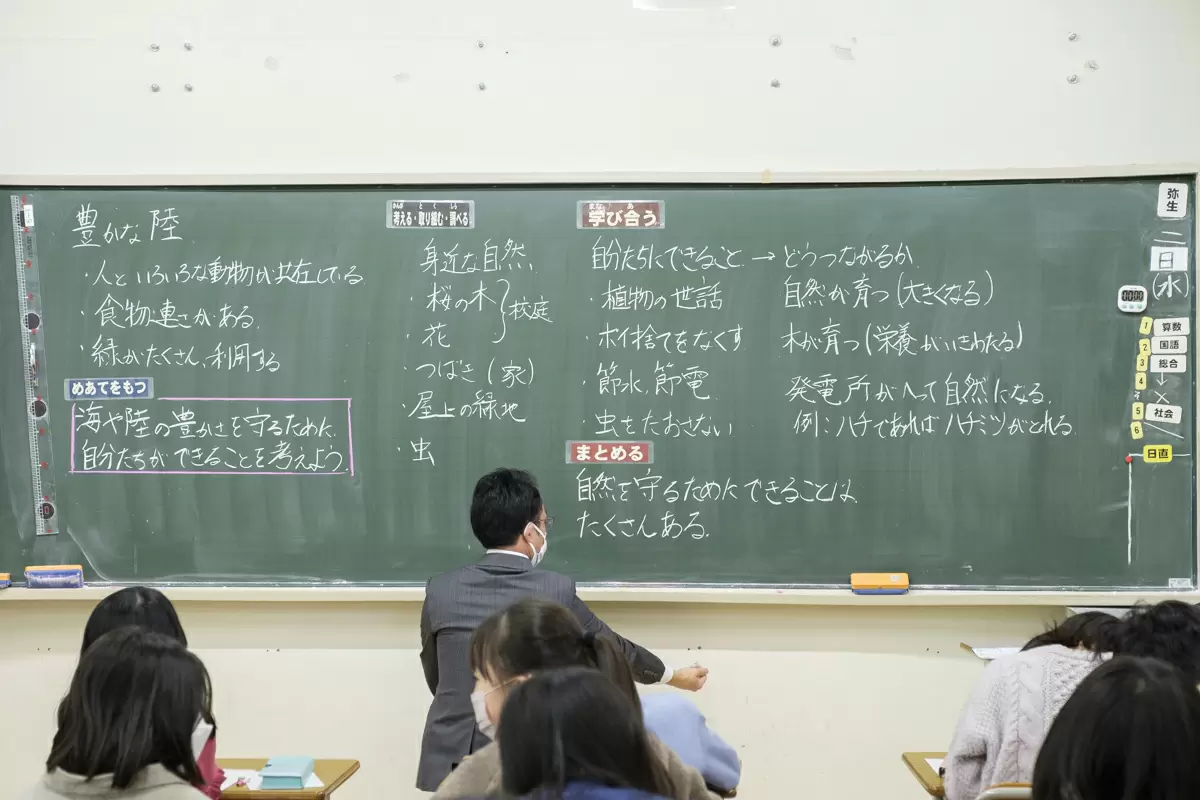 豊かな陸
・人といろいろな動物が共在している
・食物連さがある。
・緑がたくさん、利用する
めあてをもつ
海や陸の豊かさを守るために、
自分たちができることを考えよう。
考える・取り組む・調べる
身近な自然
・桜の木
・花
校庭
・つばき（家）
・屋上の緑地
・虫
学び合う
自分たちにできること → どうつながるか
・植物の世話 自然が育つ（大きくなる）
・ポイ捨てをなくす 木が育つ（栄養がいきわたる）
・節水、節電 発電所がへって自然になる。
・虫をたおさない 例：ハチであればハチミツがとれる。
まとめる
自然を守るためにできることは、
たくさんある。
弥生
二
日
（水）
1 算数
2 国語
3 総合
4 ↓
5 社会
6
日直